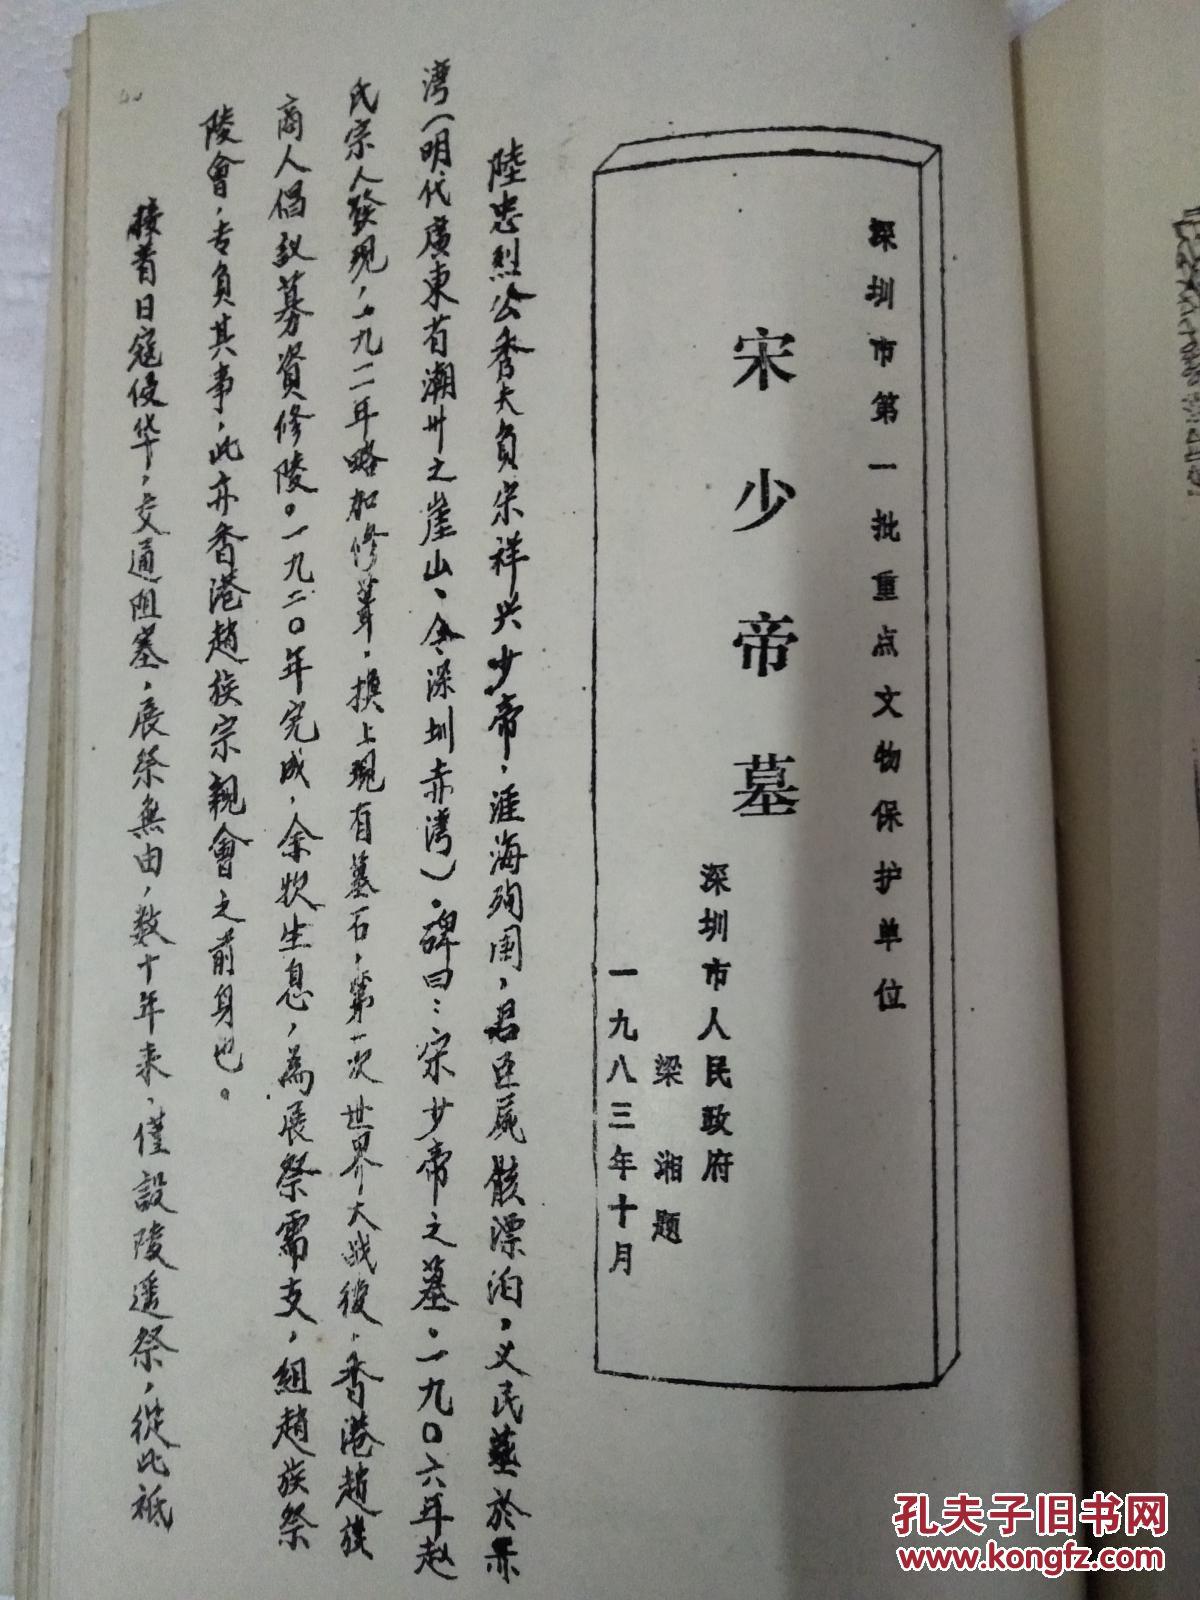 深圳市第一批重点文物保护单位
宋少帝墓
深圳市人民政府
梁湘题
一九八三年十月
陸忠烈公秀夫負宋祥兴少帝，涯海殉国，君臣屍骸漂泊，义民墓於赤
湾（明代廣東省潮州之崖山、今深圳赤湾）。碑曰：宋少帝之墓。一九〇六年赵
氏宗人發現，一九二年略加修葺，换上現有墓石，第一次世界大战後，香港趙族
商人倡议募資修陵。一九二〇年完成，余欵生息，為展祭需支，組趙族祭
陵會，专負其事，此亦香港趙族宗親會之前身也。
接着日寇侵华，交通阻塞，展祭無由，数十年来，僅設陵遥祭，從此祇
孔夫子旧书网
www.kongfz.com